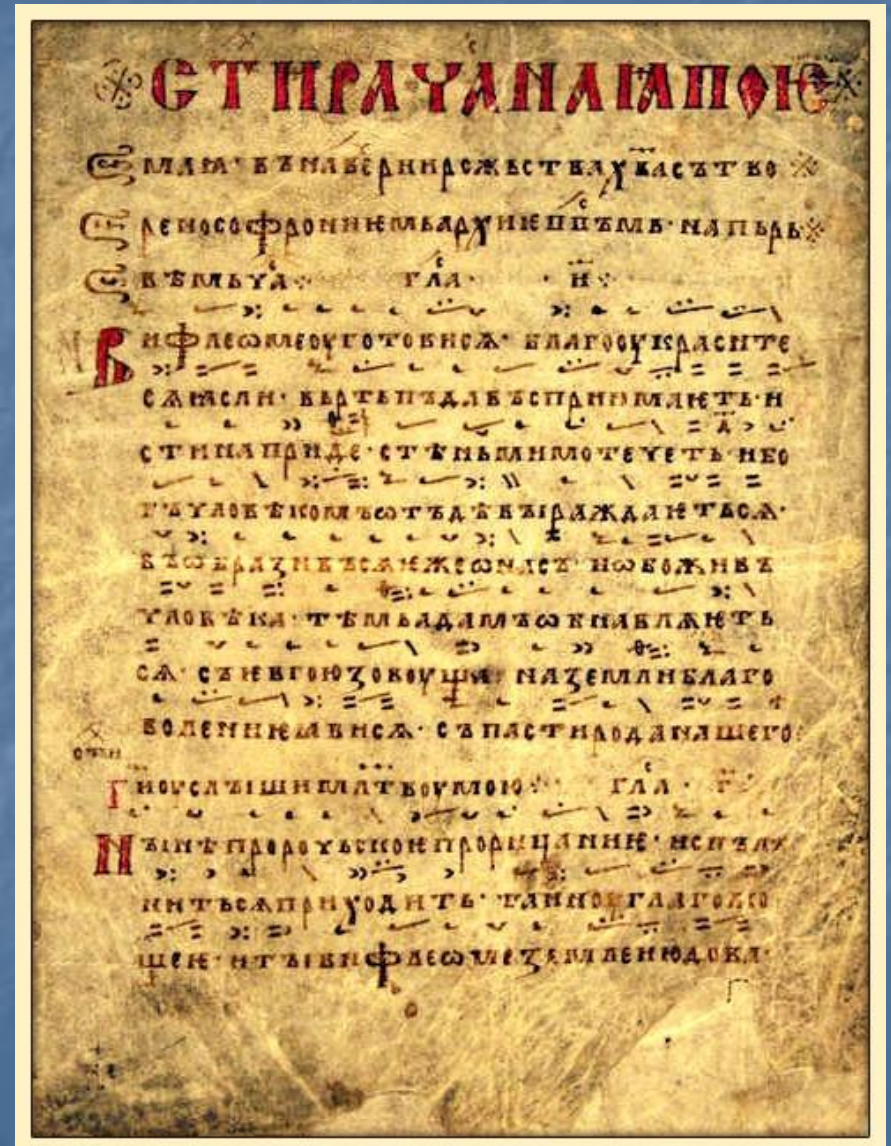 СТИРАЧАНАꙖПОѤ
МАꙖ· ВЪНАВЕРИИРОЖЬСТВАХВАСЪТВО
РЕНОСОФРОНИѤМЬАРХИѤППЪМЬ· НАПЬРЬ
ВѢМЬЧА· ГЛА· И·
ВИФЛЕѠМЕОУГОТОВИСѦ· БЛАГООУКРАСИТЕ
СѦꙖСЛИ· ВЬРТЬПЪДАВЪСПРИИМАѤТЬ· И
СТИНАПРИДЕ· СТѢНЬМИМОТЕЧЕТЬ· ИБО
ГЪЧЛОВѢКОМЪѠТЪДѢВЫРАЖДАѤТЬСѦ·
ВЪѠБРАЗИВЪСѦѤЖЕѠНАСЪ· ИѠБОЖИВЪ
ЧЛОВѢКА· ТѢМЬАДАМЪѠБНАВЛѦѤТЬ
СѦ· СЪѤВГОЮЗОВОУЩА· НАЗЕМЛИБЛАГО
ВОЛЕНИѤꙖВИСѦ· СЪПАСТИРОДАНАШЕГО
ГИОУСЛЫШИМЛТВОУМОЮ· ГЛА· Г·
НЫНѢПРОРОЧЬСКОѤПРОРИЦАНИѤ· ИСПЪЛ
НИТЬСѦПРИХОДИТЬ· ГЛАГОЛЮ
ЩЕѤ· ИТЫВИФЛЕѠМЕЗЕМЛЕИЮДОВА·